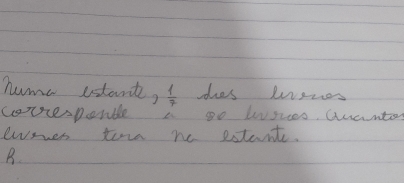 Numa estante, 1/7 dos livros
corresponde a 90 livros. Quantos
livros tera na estante.
R.